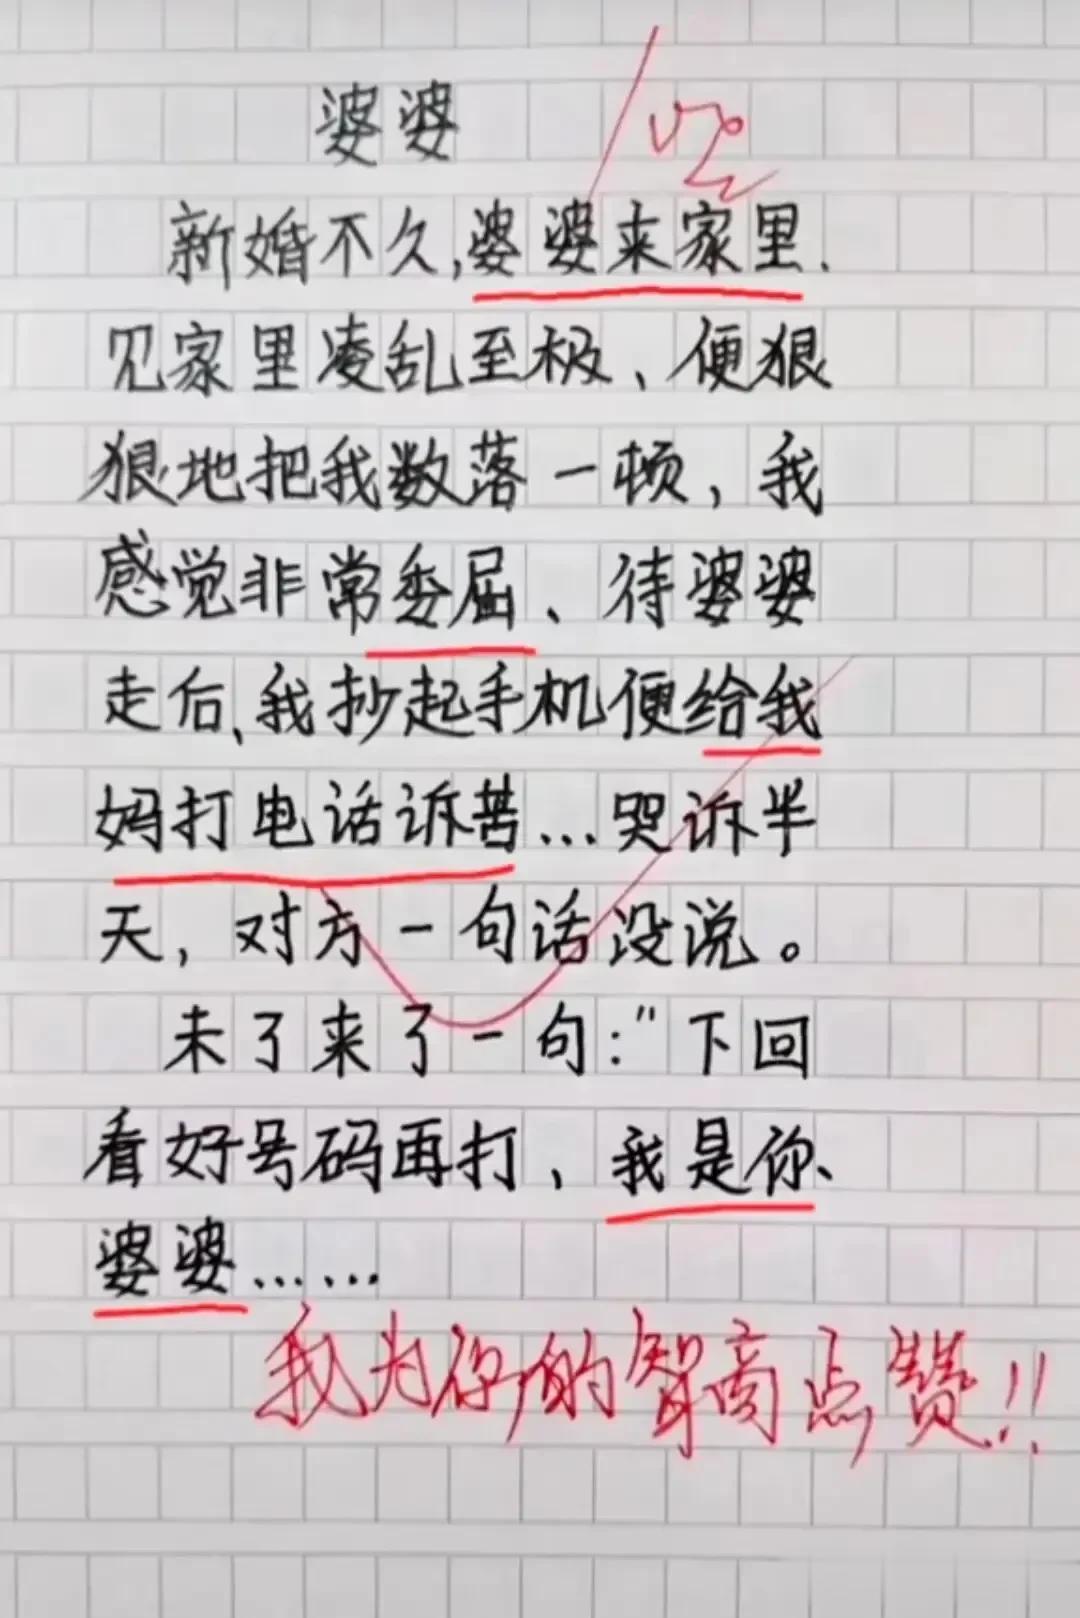 婆婆
新婚不久,婆婆来家里、
见家里凌乱至极、便狠
狠地把我数落一顿，我
感觉非常委屈、待婆婆
走后、我抄起手机便给我
妈打电话诉苦...哭诉半
天，对方一句话没说。
末了来了一句："下回
看好号码再打，我是你
婆婆……
我为你的智商点赞!!